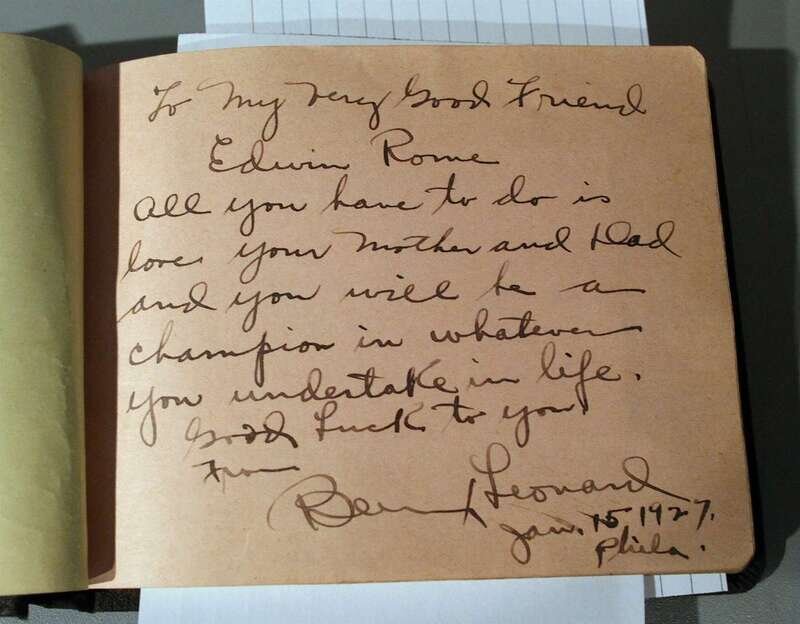 To My Very Good Friend
Edwin Rome
All you have to do is
love your Mother and Dad
and you will be a
champion in whatever
you undertake in life.
Good Luck to you
From
Benny Leonard
Jan. 15-1927.
Phila.